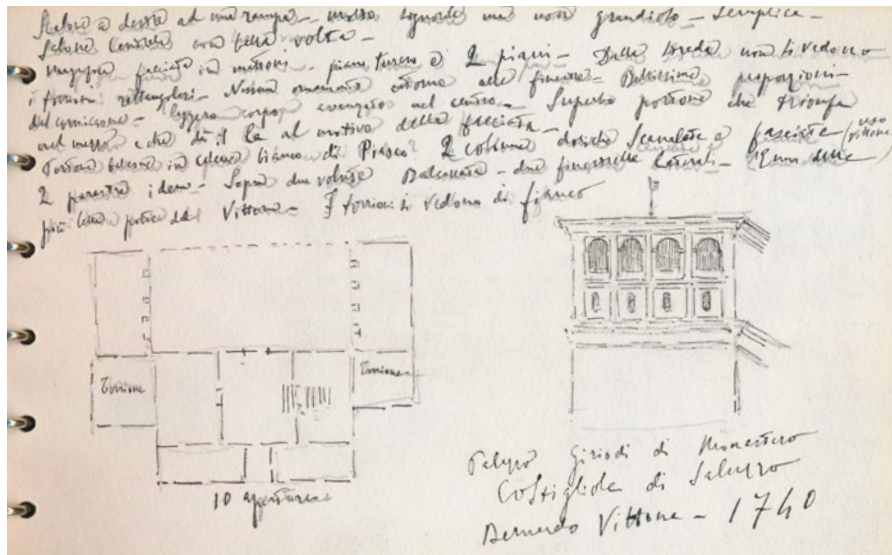 Scalone a destra ad una rampa - molto signorile ma non grandioso - Semplice -
Salone Centrale con bella volta -
Magnifica facciata in mattoni - piano terreno e 2 piani - Dalla strada non si vedono
i torrioni rettangolari - Nessun ornamento attorno alle finestre - Bellissime proporzioni -
del cornicione - leggero corpo avanzato nel centro - Superbo portone che trionfa
nel mezzo e che dà il la al motivo della facciata - 
Portone in bianco di Piasco? 2 colonne doriche Scanalate e fasciate (uso Vittone)
2 paraste idem - Sopra due volute Balconata - due finestrelle laterali - È una delle
più belle del Vittone - I torrioni si vedono di fianco
Torrione
Torrione
10 aperture
Palazzo Giriodi di Monastero
Costigliole di Saluzzo
Bernardo Vittone - 1740